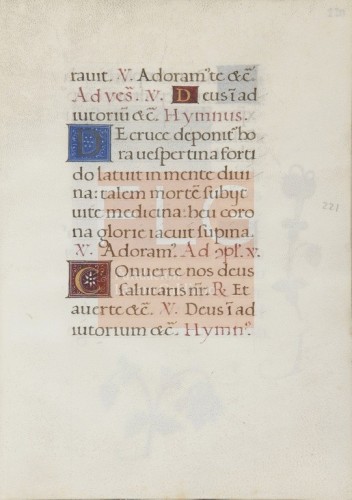 rauit. V. Adoram⁹ te &c̄.
Ad ves̄. V. Deus ī ad
iutoriū &c̄. Hymnus.
De cruce deponit² ho
ra uespertina forti
do latuit in mente diui
na: talem mortē subijt
uite medicina: heu coro
na glorie iacuit supina.
V. Adoram⁹. Ad ꝯpl². V.
Conuerte nos deus
salutaris nr̄. R. Et
auerte &c̄. V. Deus ī ad
iutorium &c̄. Hymn⁹.
221